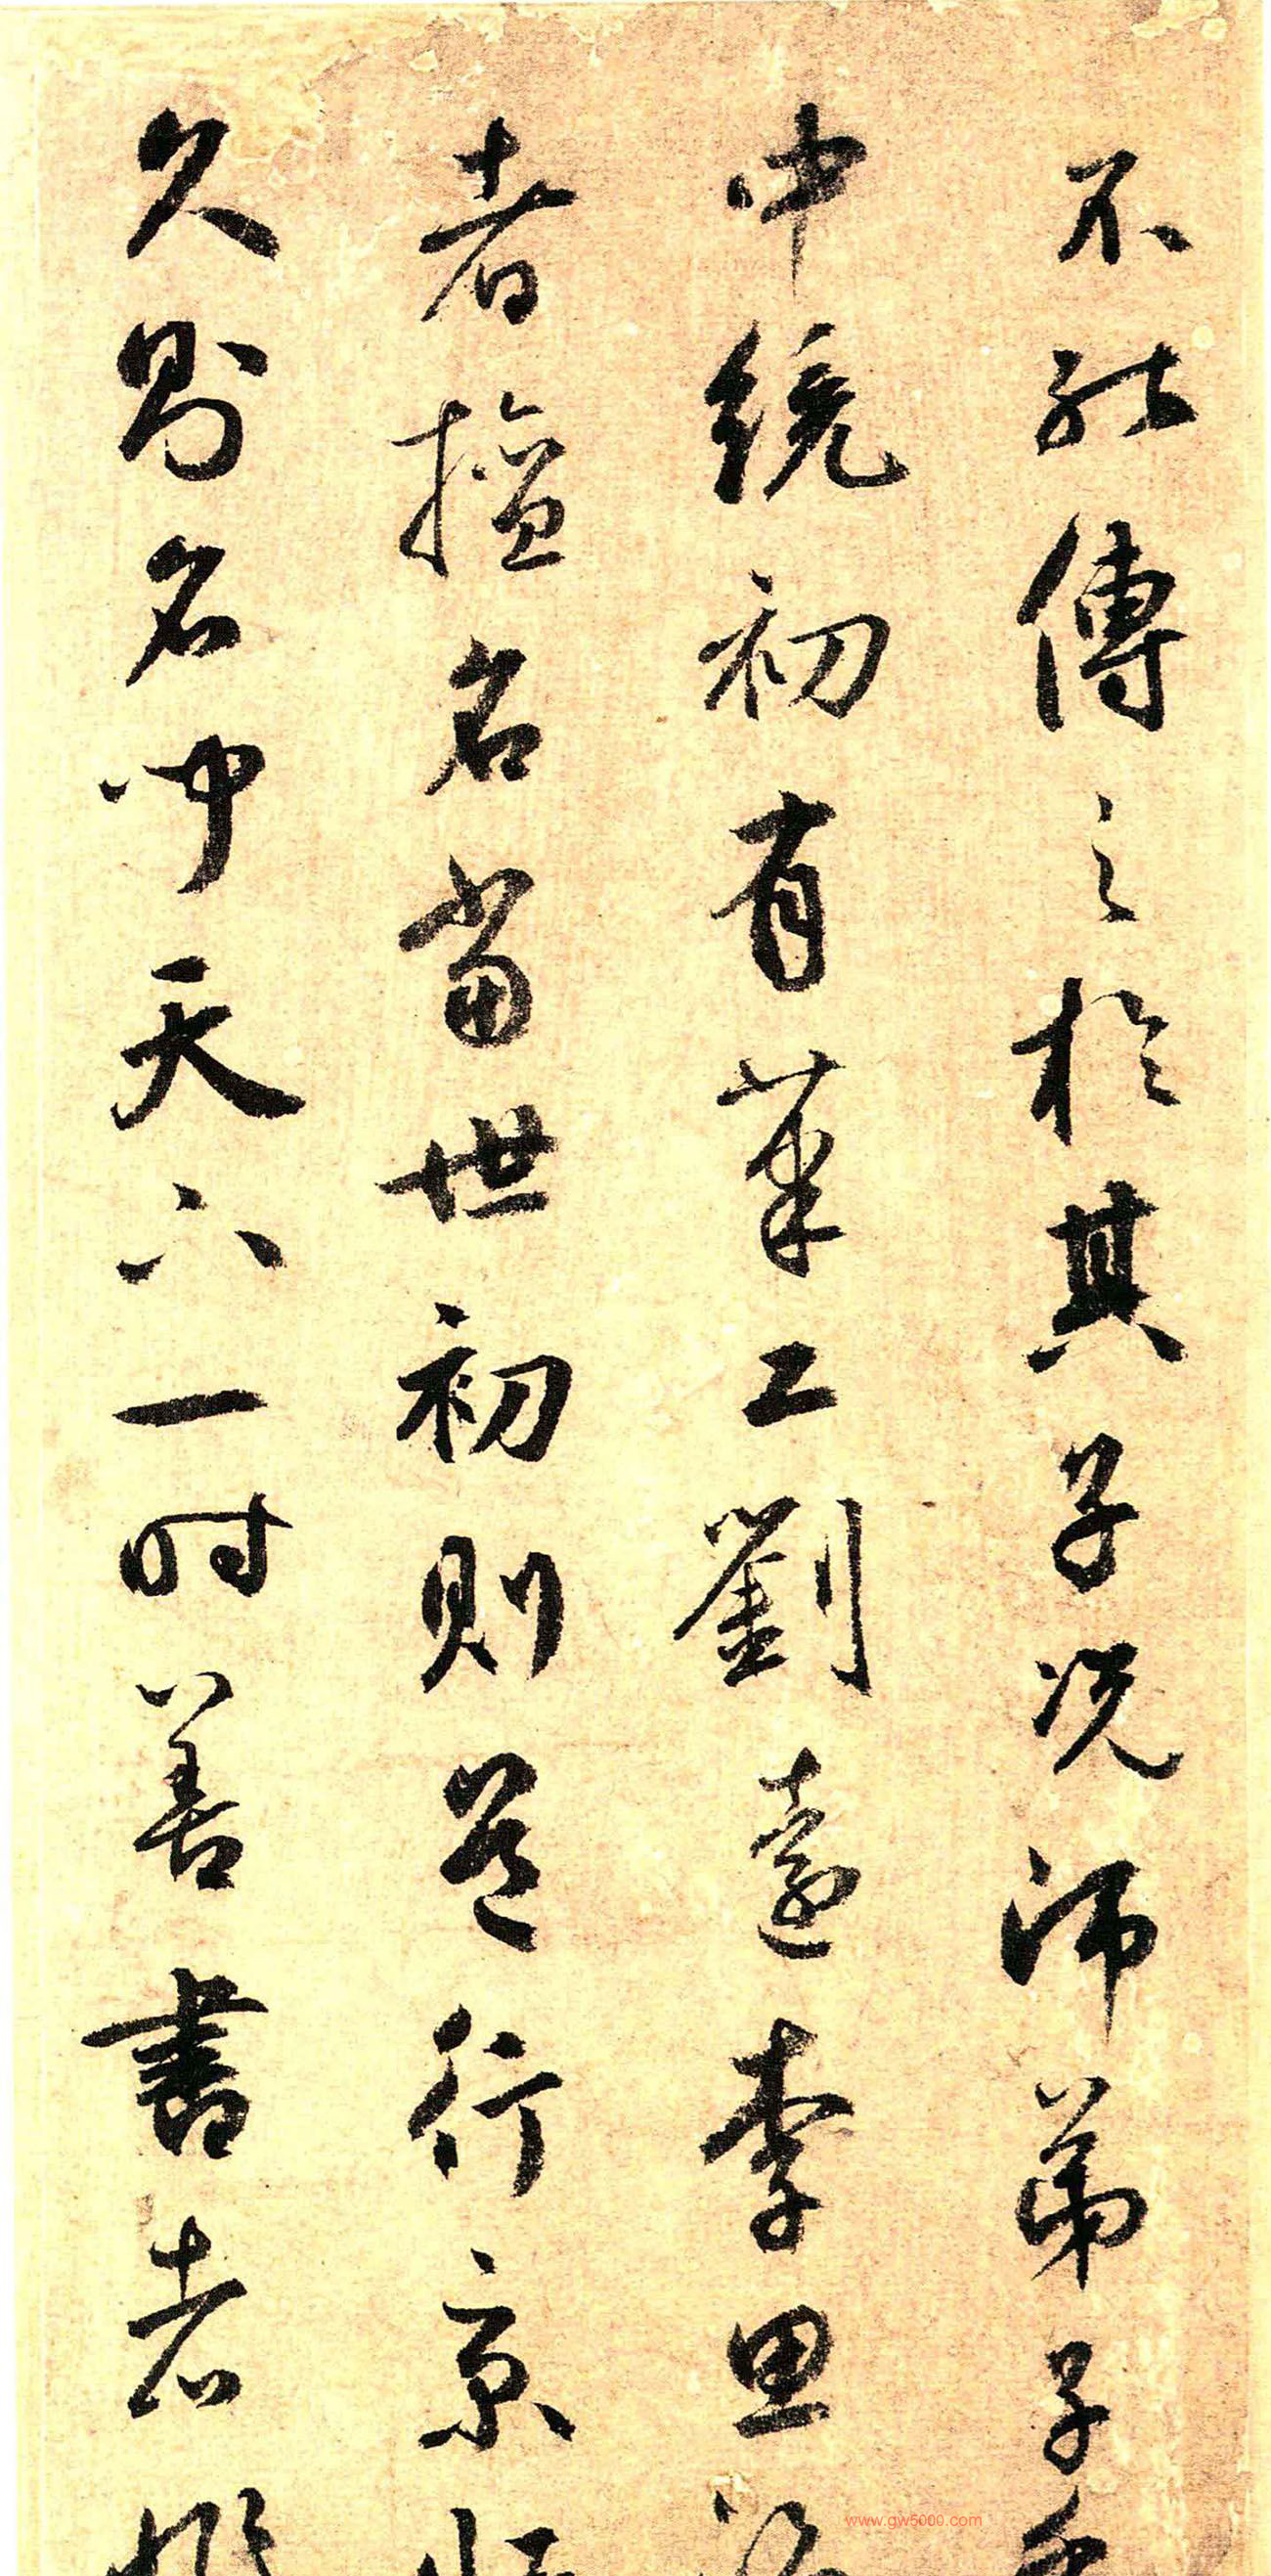 不能傳之於其子況師弟子乎
中統初有筆工劉遠李思
者擅名當世初則盛行京
久則名聞天下一時善書者
www.gw5000.com